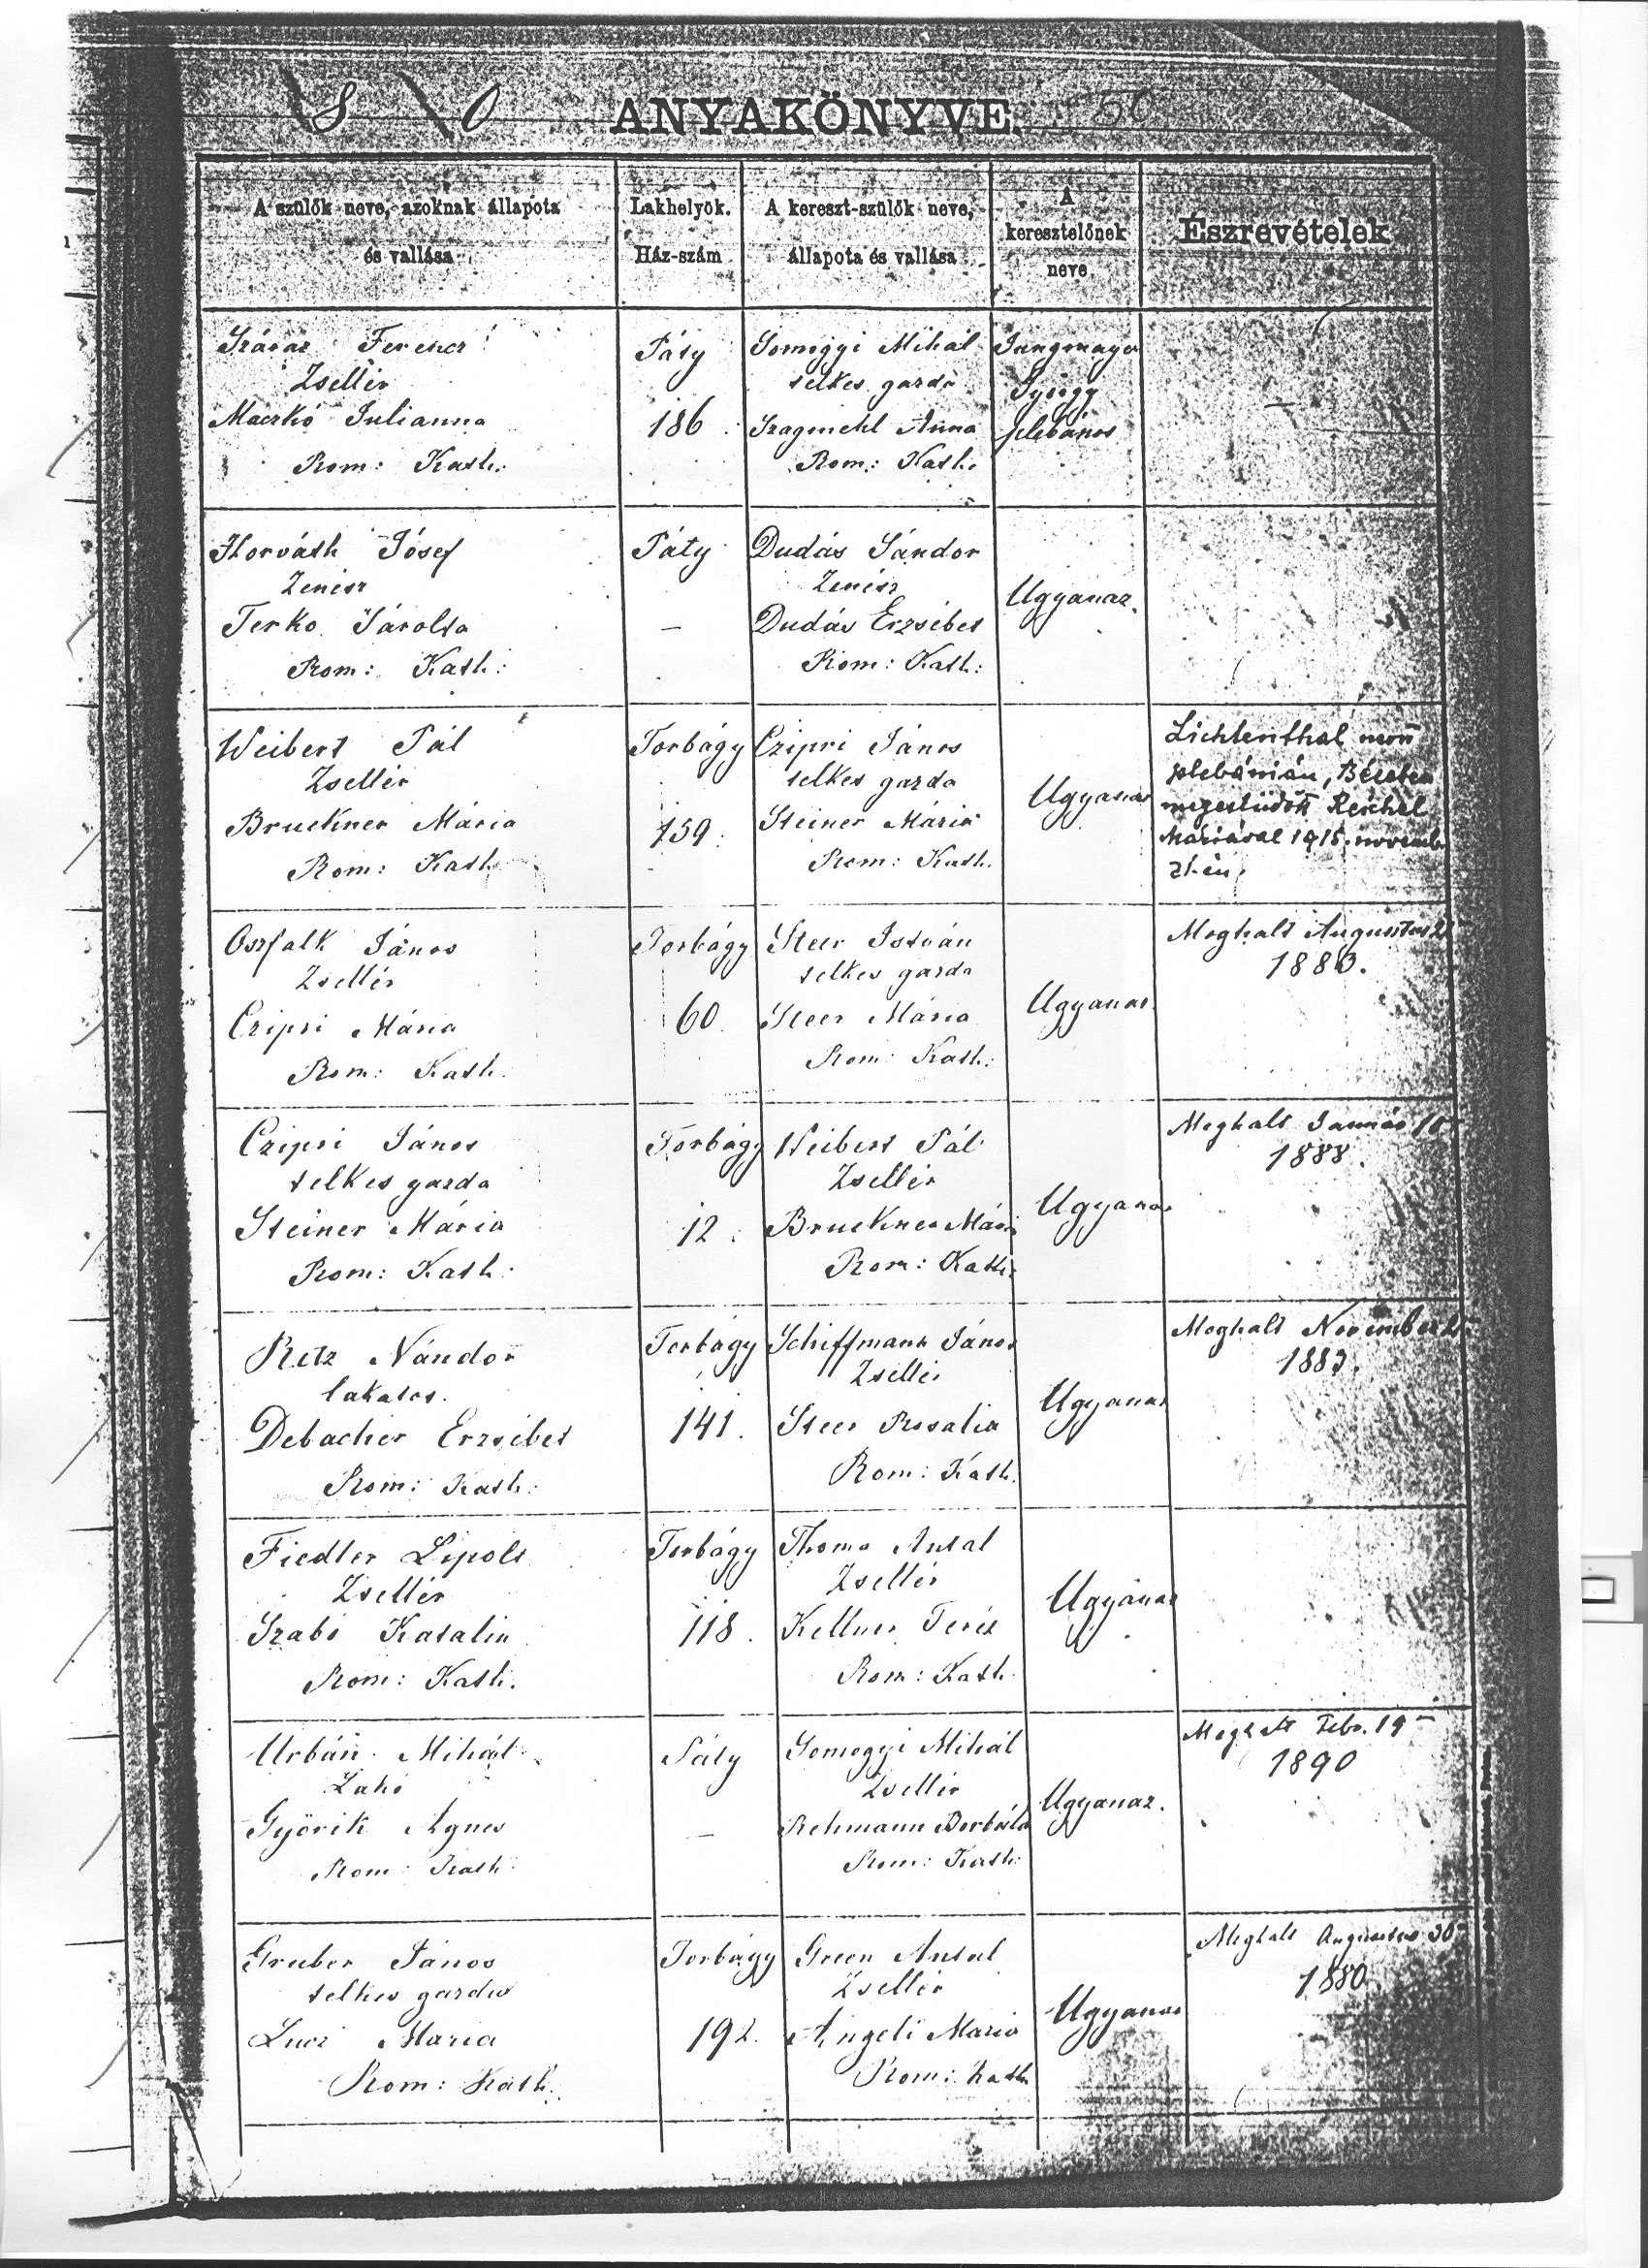 ANYAKÖNYVE. 50
A szülők neve, azoknak állapota
és vallása
Lakhelyök.
Ház-szám
A kereszt-szülők neve,
állapota és vallása
A
keresztelőnek
neve
Észrevételek
Száraz Ferencz
Zsellér
Maczkó Julianna
Rom: Kath:
Páty
186
Somogyi Mihál
telkes gazda
Anna
Rom: Kath.
György
plebános
—
Horváth Jósef
Zenész
Terko Sárolta
Rom: Kath:
Páty
—
Dudás Sándor
Zenész
Dudás Erzsébet
Rom: Kath:
Ugyanaz.
Weibert Pál
Zsellér
Bruckner Mária
Rom: Kath
Torbágy
159.
Czipri János
telkes gazda
Steiner Mária
Rom: Kath.
Ugyanaz
Lichtenthal nevű
plebánián, Bécsben
megesküdött Reichel
Máriával 1915. novemb
21-én.
Oszfalk János
Zsellér
Czipri Mária
Rom: Kath.
Torbágy
60.
Steer István
telkes gazda
Steer Mária
Rom: Kath:
Ugyanaz.
Meghalt Augustus
1880.
Czipri János
telkes gazda
Steiner Mária
Rom: Kath:
Torbágy
12.
Weibert Pál
Zsellér
Bruckner Mári
Rom: Kath:
Ugyanaz
Meghalt Január
1888.
Retz Nándor
lakatos.
Debacher Erzsébet
Rom: Kath:
Torbágy
141.
Schiffmann János
Zsellér
Steer Rosalia
Rom: Kath.
Ugyanaz
Meghalt November
1883.
Fiedler Lipolt
Zsellér
Szabó Katalin
Rom: Kath.
Torbágy
118.
Thoma Antal
Zsellér
Kellner Teréz
Rom: Kath.
Ugyanaz
Urbán Mihál
Lakó
Györik Agnes
Rom: Kath:
Páty
—
Somogyi Mihál
Zsellér
Rehmann Borbála
Rom: Kath:
Ugyanaz.
Meghalt Febr. 19
1890
Gruber János
telkes gazda
Lucz Maria
Rom: Kath.
Torbágy
192.
Green Antal
Zsellér
Angeli Maria
Rom: Kath
Ugyanaz
Meghalt Augustus 30
1880.